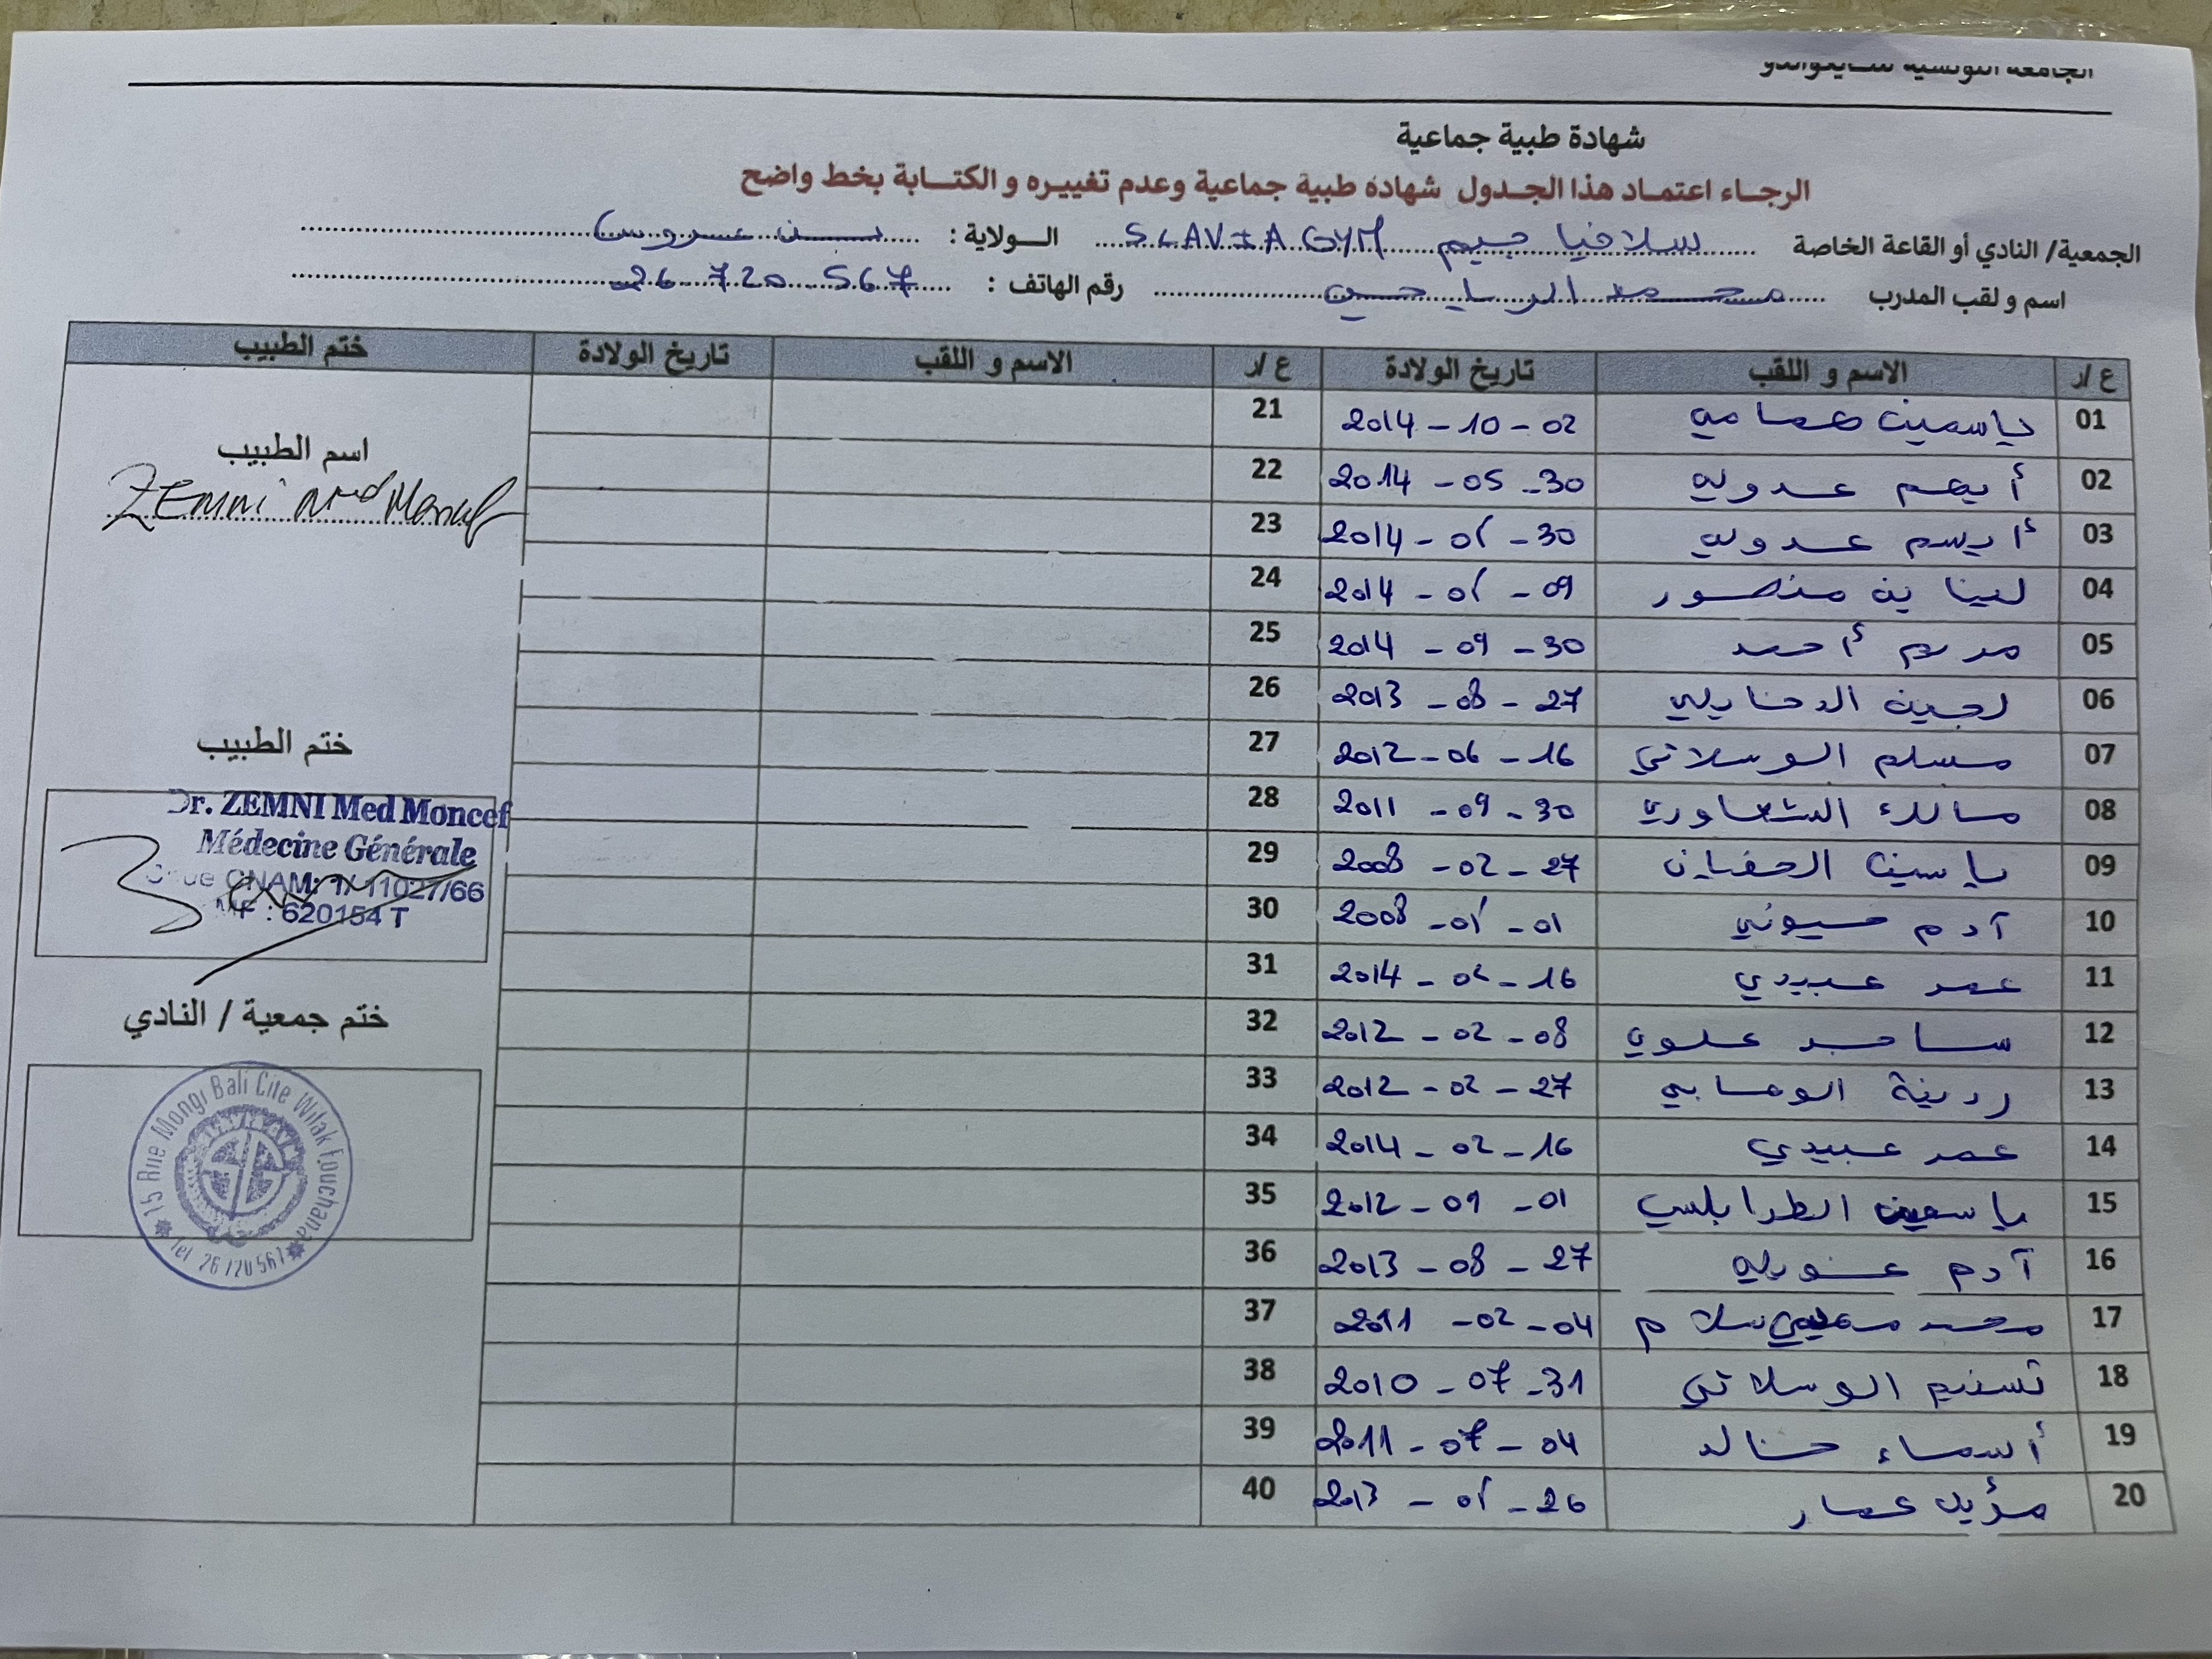 الجامعة التونسية للتايكواندو
شهادة طبية جماعية
الرجاء اعتماد هذا الجدول شهادة طبية جماعية وعدم تغييره و الكتابة بخط واضح
الجمعية/ النادي أو القاعة الخاصة سلافيا جيم SLAVIA GYM الولاية : بن عروس
اسم و لقب المدرب محمد الرياحي رقم الهاتف : 26 720 567
ع /ر الاسم و اللقب تاريخ الولادة ع /ر الاسم و اللقب تاريخ الولادة ختم الطبيب
01 ياسمين همامي 2014 - 10 - 02 21
02 أيهم عدولي 2014 - 05 - 30 22
03 أيسم عدولي 2014 - 05 - 30 23
04 لينا بن منصور 2014 - 05 - 09 24
05 مريم أحمد 2014 - 09 - 30 25
06 لجين الدخايلي 2013 - 08 - 27 26
07 مسلم الوسلاتي 2012 - 06 - 16 27
08 2011 - 09 - 30 28
09 ياسين 2008 - 02 - 27 29
10 آدم 2008 - 01 - 30
11 عمر عبيدي 2014 - 02 - 16 31
12 ساجد علوي 2012 - 02 - 08 32
13 الوهابي 2012 - 02 - 27 33
14 عمر عبيدي 2014 - 02 - 16 34
15 ياسمين الطرابلسي 2012 - 09 - 01 35
16 آدم 2013 - 08 - 27 36
17 محمد سلام 2011 - 02 - 04 37
18 تسنيم الوسلاتي 2010 - 07 - 31 38
19 أسماء خالد 2011 - 07 - 04 39
20 عمار 2013 - 26 40
اسم الطبيب
ZEMNI Med Moncef
ختم الطبيب
Dr. ZEMNI Med Moncef
Médecine Générale
CNAM: 1/ 11027/66
MF : 620154 T
ختم جمعية / النادي
15 Rue Mongi Bali Cite Wifak Fouchana
Tel 26 720 567